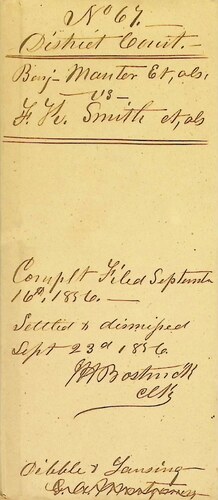 No 67.
District Court.
Benj Manter Et, als,
vs
F. W. Smith et, als
Complt Filed Septemb
16th, 1856.
Settled & dismissed
Sept 23d 1856.
Bostwick
Clk
Dibble & Lansing